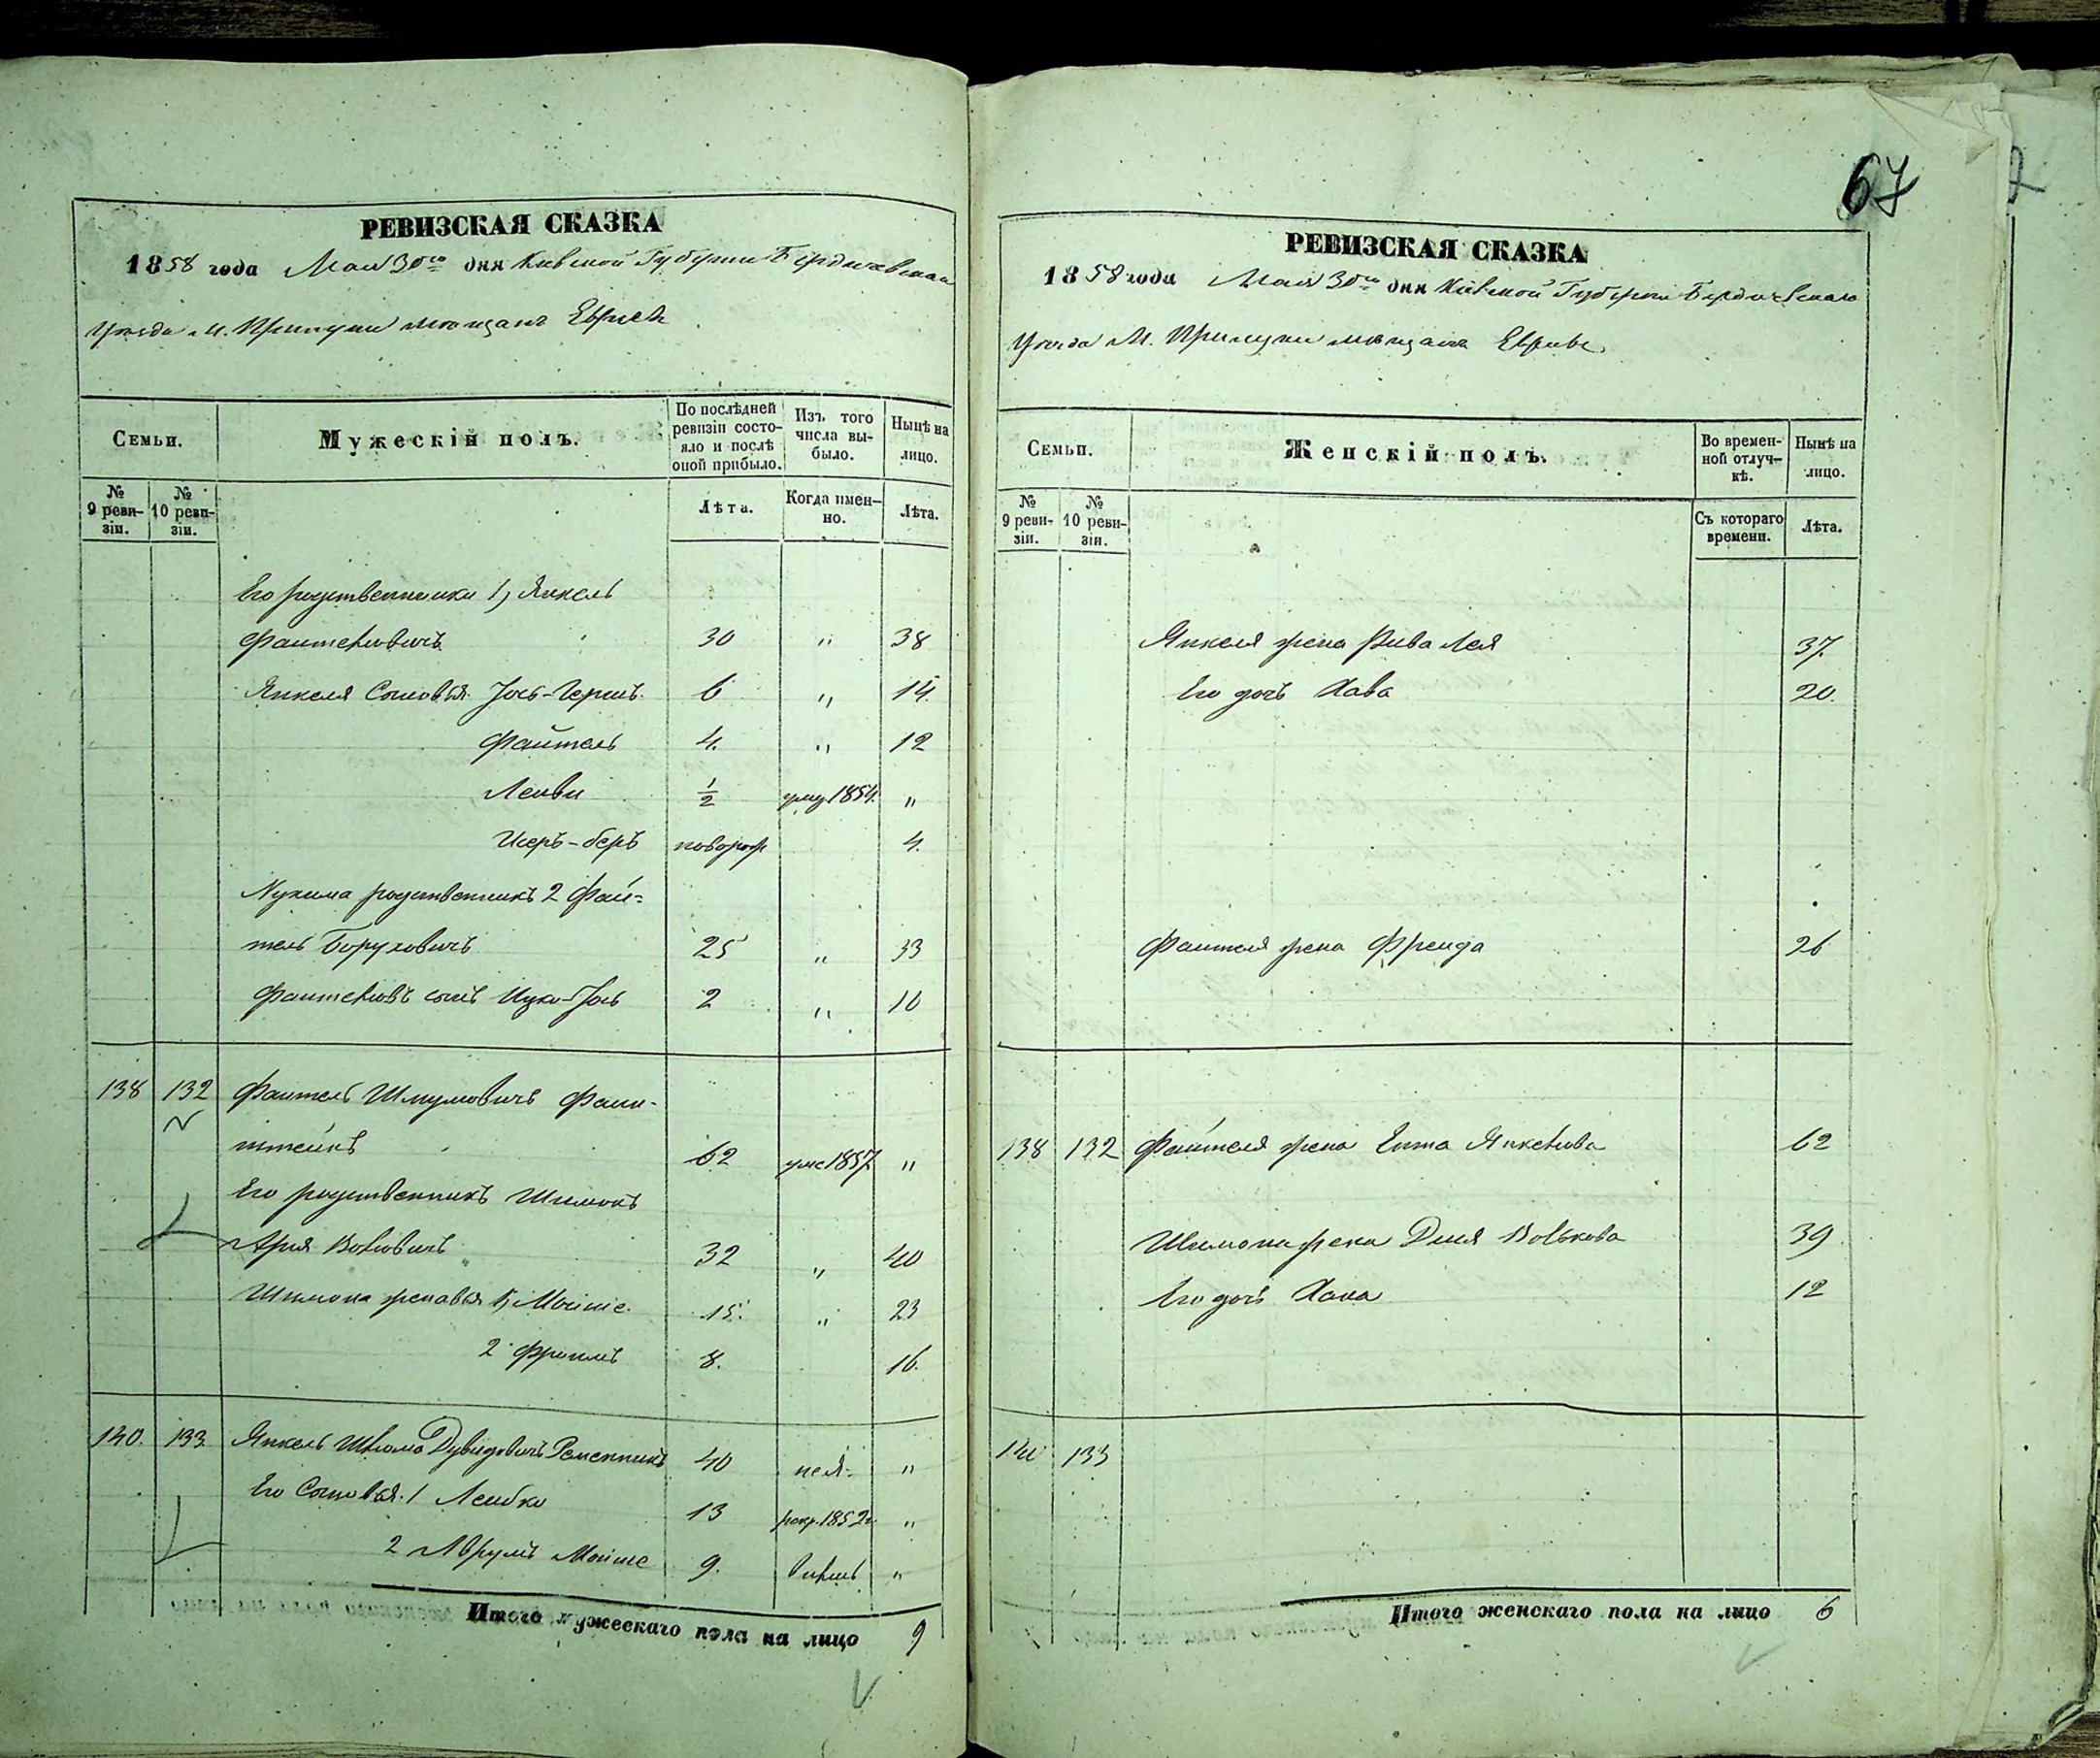 67
РЕВИЗСКАЯ СКАЗКА
1858 года Мая 30го дня Киевской Губернии Бердичевскаго
уезда м. Прилуки мещанъ Евреевъ
Семьи.
Мужескій полъ.
По послѣдней ревизіи состо-
яло и послѣ оной прибыло.
Изъ того числа вы-
было.
Нынѣ на лицо.
№ 9 реви-
зіи.
№ 10 реви-
зіи.
Лѣта.
Когда имен-
но.
Лѣта.
Его родственники 1, Янкель
Файтелиовичъ 30 " 38
Янкеля Сыновья Іось-Гершъ 6 " 14
Файтель 4. " 12
Лейви 1/2 уме 1854. "
Исеръ-беръ новорож 4.
Нухима родственникъ 2 Фай=
тель Боруховичъ 25 " 33
Файтелиовъ сынъ Ицко-Іось 2 " 10
138 132 Файтель Шмулиовичъ Файн-
штейнъ 62 уме 1857. "
Его родственникъ Шимонъ
Арія Волиовичъ 32 " 40
Шимона сыновья 1, Мошше 15. " 23
2 Фроимъ 8. 16.
140. 133. Янкель Шлиома Дувидовичъ Ременникъ 40 неяв. "
Его Сыновья. 1 Лейбко 13 рекр. 1852г. "
2 Аврумъ Мойше 9. "
Итого мужескаго пола на лицо 9
РЕВИЗСКАЯ СКАЗКА
1858 года Мая 30го дня Киевской Губерніи Бердичевскаго
уезда М. Прилуки мещанъ Евреевъ
Семьи.
Женскій полъ.
Во времен-
ной отлуч-
кѣ.
Нынѣ на лицо.
№ 9 реви-
зіи.
№ 10 реви-
зіи.
Съ котораго времени.
Лѣта.
Янкеля жена Рива Лея 37.
Его дочь Хава 20.
Файтеля жена Фрейда 26
138 132 Файтеля жена Ента Янкелиова 62
Шимона жена Диня Волькова 39
Его дочь Хана 12
140 133
Итого женскаго пола на лицо 6